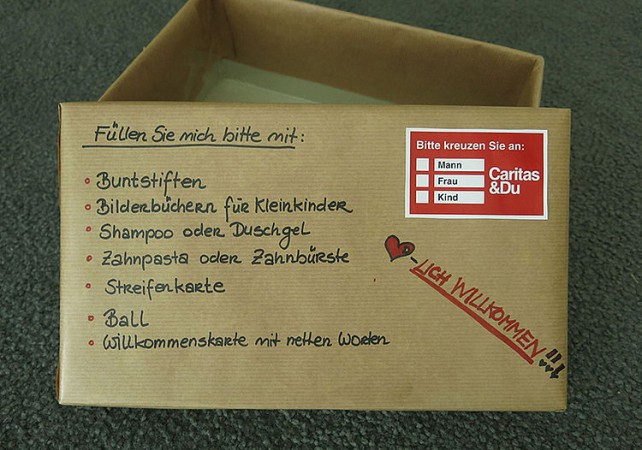 Füllen Sie mich bitte mit:
Buntstiften
Bilderbüchern für Kleinkinder
Shampoo oder Duschgel
Zahnpasta oder Zahnbürste
Streifenkarte
Ball
Willkommenskarte mit netten Worden
Bitte kreuzen Sie an:
Mann
Frau
Kind
Caritas
&Du
-LICH WILLKOMMEN!!!